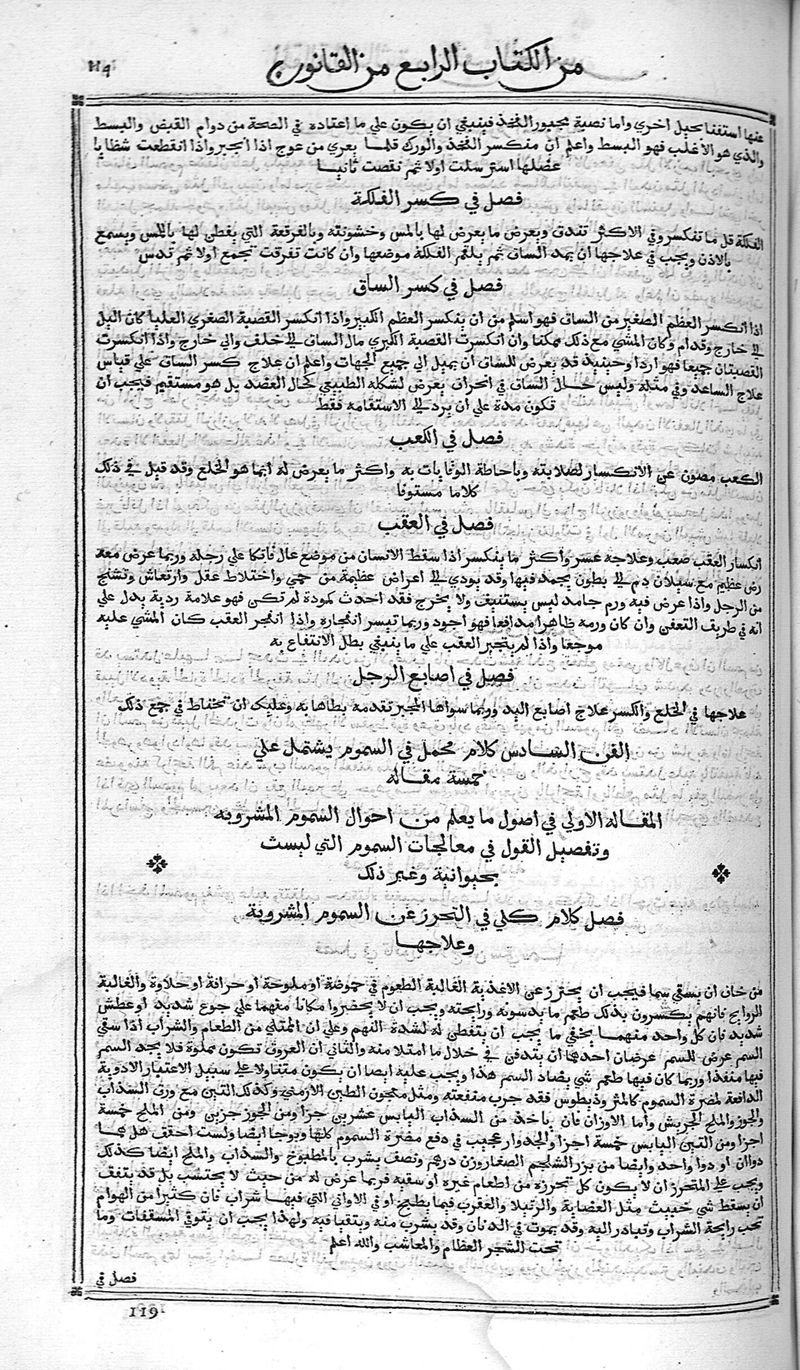 من الكتاب الرابع من القانون
١١٩
عنها استغنا بحيل اخري واما نصبة مجبور الفخذ فينبغي ان يكون علي ما اعتاده في الصحة من دوام القبض والبسط
والذي هو الاغلب فهو البسط واعلم ان منكسر الفخذ والورك قلما يعري من عوج اذا انجبر واذا انقطعت شظايا
عضلها استرسلت اولا ثم نقصت ثانيا
فصل في كسر الفلكة
الفلكة قل ما تنكسر وفي الاكثر تندق ويعرض ما يعرض لها بالمس وخشونته وبالفرقعة التي يفطن لها باللمس ويسمع
بالاذن ويجب في علاجها ان يمد الساق ثم يلقم الفلكة موضعها وان كانت تفرقت تجمع اولا ثم تدس
فصل في كسر الساق
اذا انكسر العظم الصغير من الساق فهو اسلم من ان ينكسر العظم الكبير واذا انكسر القصبة الصغري العليا كان الميل
الي خارج وقدام وكان المشي مع ذلك ممكنا وان انكسرت القصبة الكبري مال الساق الي خلف والي خارج واذا انكسرت
القصبتان جميعا فهو اردا وحينيذ قد يعرض للساق ان يميل الي جميع الجهات واعلم ان علاج كسر الساق علي قياس
علاج الساعد وفي مثله وليس حال الساق في انحراف يعرض لشكله الطبيعي كحال العضد بل هو مستقيم فيجب ان
تكون مدة علي ان يرد الي الاستقامه فقط
فصل في الكعب
الكعب مصون عن الانكسار لصلابته وباحاطة الوقايات به واكثر ما يعرض له انما هو الخلع وقد قيل في ذلك
كلاما مستوفا
فصل في العقب
انكسار العقب صعب وعلاجه عسر واكثر ما ينكسر اذا سقط الانسان من موضع عال فاتكا علي رجله وربما عرض معه
رض عظيم مع سيلان دم الي بطون يجمد فيها وقد يودي الي اعراض عظيمة من حمي واختلاط عقل وارتعاش وتشنج
من الرجل واذا عرض فيه ورم جامد ليس يستنبف ولا يخرج فقد احدث كمودة لم تكن فهو علامة ردية يدل علي
انه في طريف التعفن وان كان ورمه ظاهرا مدافعا فهو اجود وربما تيسر انفجاره واذا انجبر العقب كان المشي عليه
موجعا واذا لم ينجبر العقب علي ما ينبغي بطل الانتفاع به
فصل في اصابع الرجل
علاجها في الخلع والكسر علاج اصابع اليد وربما سواها المجبر تقدمه بطاها به وعليك ان تحتفاط في جمع ذلك
الفن السادس كلام مجمل في السموم يشتمل علي
خمسة مقاله
المقاله الاولي في اصول ما يعلم من احوال السموم المشروبه
وتفصيل القول في معالجات السموم التي ليست
بحيوانية وغير ذلك
فصل كلام كلي في التحرز عن السموم المشروبة
وعلاجها
من خاف ان يسقي سما فيجب ان يحترز عن الاغذية الغالبة الطعوم في حموضة او ملوحة او حرافة او حلاوة والغالبة
الروايح فانهم يكسرون بذلك طعم ما يدسونه ورايحته ويجب ان لا يحضروا مكانا متهما علي جوع شديد او عطش
شديد فان كل واحد منهما يخفي ما يجب ان يتفطن له لشدة النهم وعلي ان الممتلي من الطعام والشراب اذا سقي
السم عرض للسم عرضان احدهما ان يندفن في خلال ما امتلا منه والثاني ان العروق تكون مملوة فلا يجد السم
فيها منفذا وربما كان فيها طعم شي يضاد السم هذا ويجب عليه ايضا ان يكون متناولا علي سبيل الاعتبار الادوية
الدافعة لمضرة السموم كالمثروذيطوس فقد جرب منفعته ومثل معجون الطين الارمني وكذلك التين مع ورق السذاب
والجوز والملح الجريش واما الاوزان فان ياخذ من السذاب اليابس عشرين جزا ومن الجوز جزين ومن الملح خمسة
اجزا ومن التين اليابس خمسة اجزا والجدوار عجيب في دفع مضرة السموم كلها وبوجا ايضا ولست احقق هل هما
دواان او دوا واحد وايضا من بزر الشلجم الصغار وزن درهم ونصف يشرب بالمطبوخ والسذاب والملح ايضا كذلك
ويجب علي المتحرز ان لا يكون كل تحرزه من اطعام غيره او سقيه فربما عرض له من حيث لا يحتسب بل قد يتفق
ان يسقط شي خبيث مثل العضاية والرتيلا والعقرب فيما يطبخ او في الاواني التي فيها شراب فان كثيرا من الهوام
تحب رايحة الشراب وتبادر اليه وقد يموت في الدنان وقد يشرب منه ويتقيا فيه ولهذا يجب ان يتوقي المسقفات وما
تحت الشجر العظام والمعاشب والله اعلم
فصل في
119